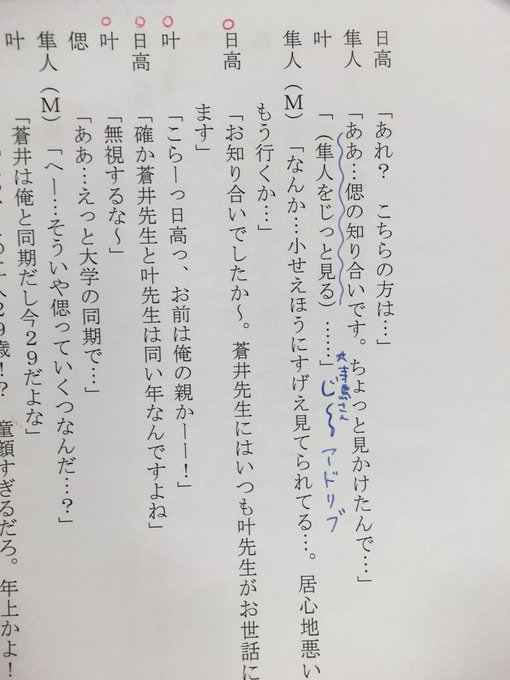 日高 「あれ？　こちらの方は…」
隼人 「ああ…偲の知り合いです。ちょっと見かけたんで…」
叶 「（隼人をじっと見る）……」
寺島さん
じ〜 アードリブ
隼人（M） 「なんか…小せえほうにすげえ見てられてる…。居心地悪い
もう行くか…」
日高 「お知り合いでしたか〜。蒼井先生にはいつも叶先生がお世話に
ます」
叶 「こらーっ日高っ、お前は俺の親かーー！」
日高 「確か蒼井先生と叶先生は同い年なんですよね」
叶 「無視するな〜」
偲 「ああ…えっと大学の同期で…」
隼人（M） 「へー…そういや偲っていくつなんだ…？」
叶 「蒼井は俺と同期だし今２９だよな」
２９歳！？　童顔すぎるだろ。年上かよ！